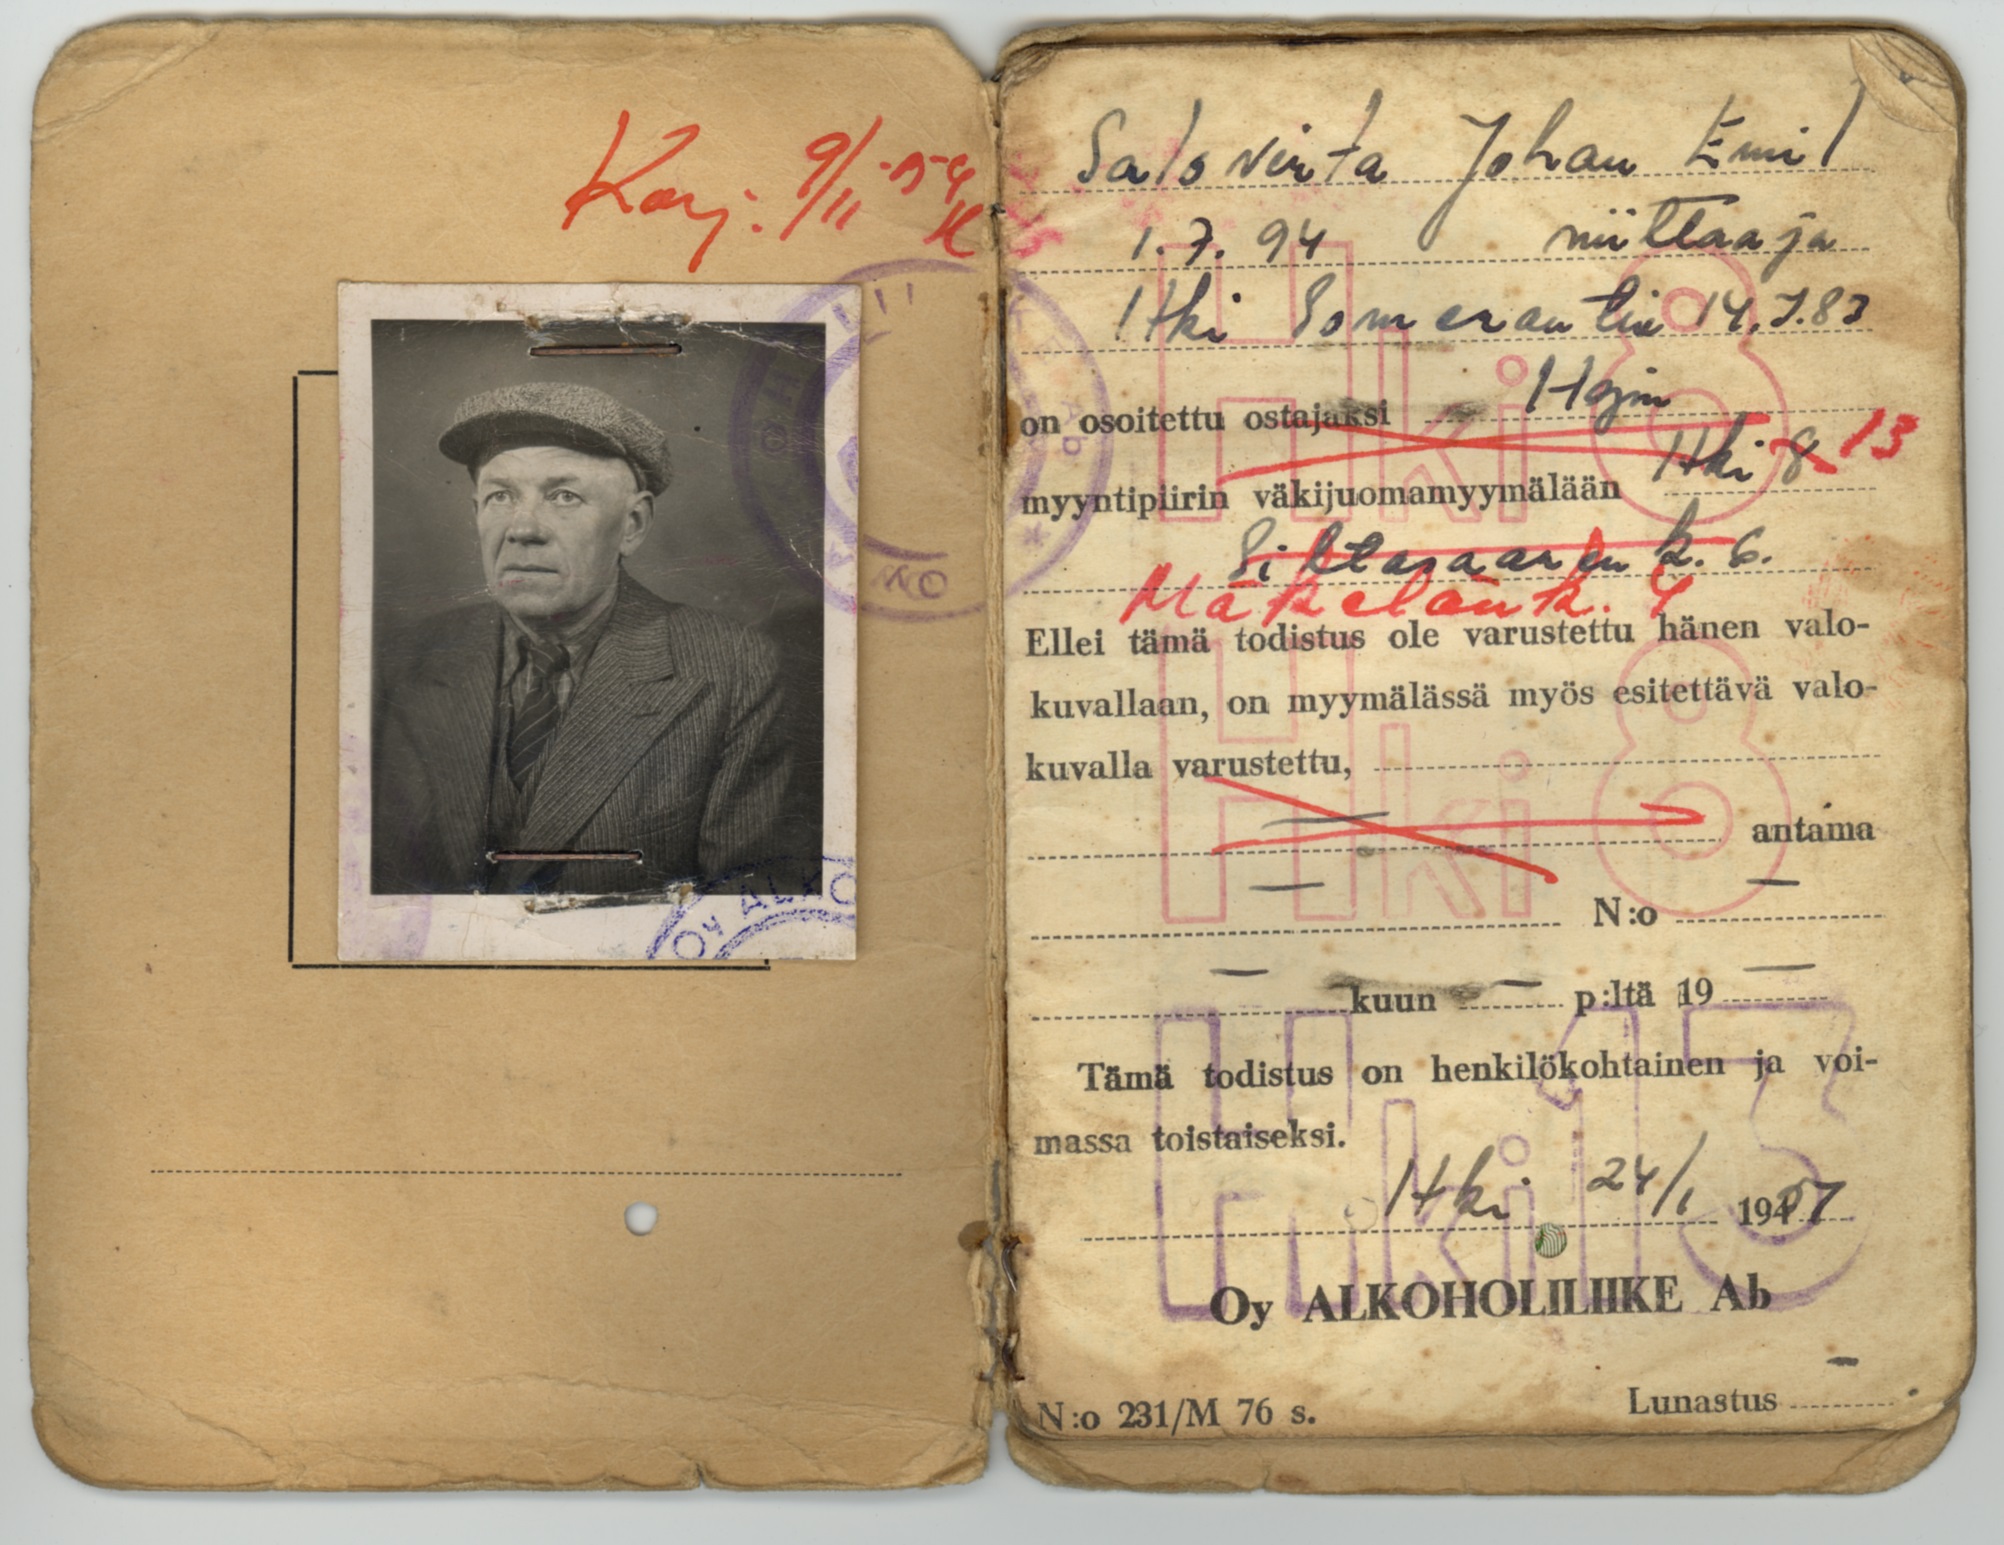 Karj: 9/11 -54
Oy ALKO
Salovirta Johan Emil
1.7.94 niittaaja
Hki Somerantie 14.7.83
on osoitettu ostajaksi Hgin
myyntipiirin väkijuomamyymälään Hki 8 13
Siltasaaren k. 6.
Mäkelänk. 4
Ellei tämä todistus ole varustettu hänen valo-
kuvallaan, on myymälässä myös esitettävä valo-
kuvalla varustettu,
antama
N:o
kuun p:ltä 19
Tämä todistus on henkilökohtainen ja voi-
massa toistaiseksi.
Hki 24/1 1947
Oy ALKOHOLILIIKE Ab
N:o 231/M 76 s. Lunastus
Hki 8
Hki 8
Hki 13